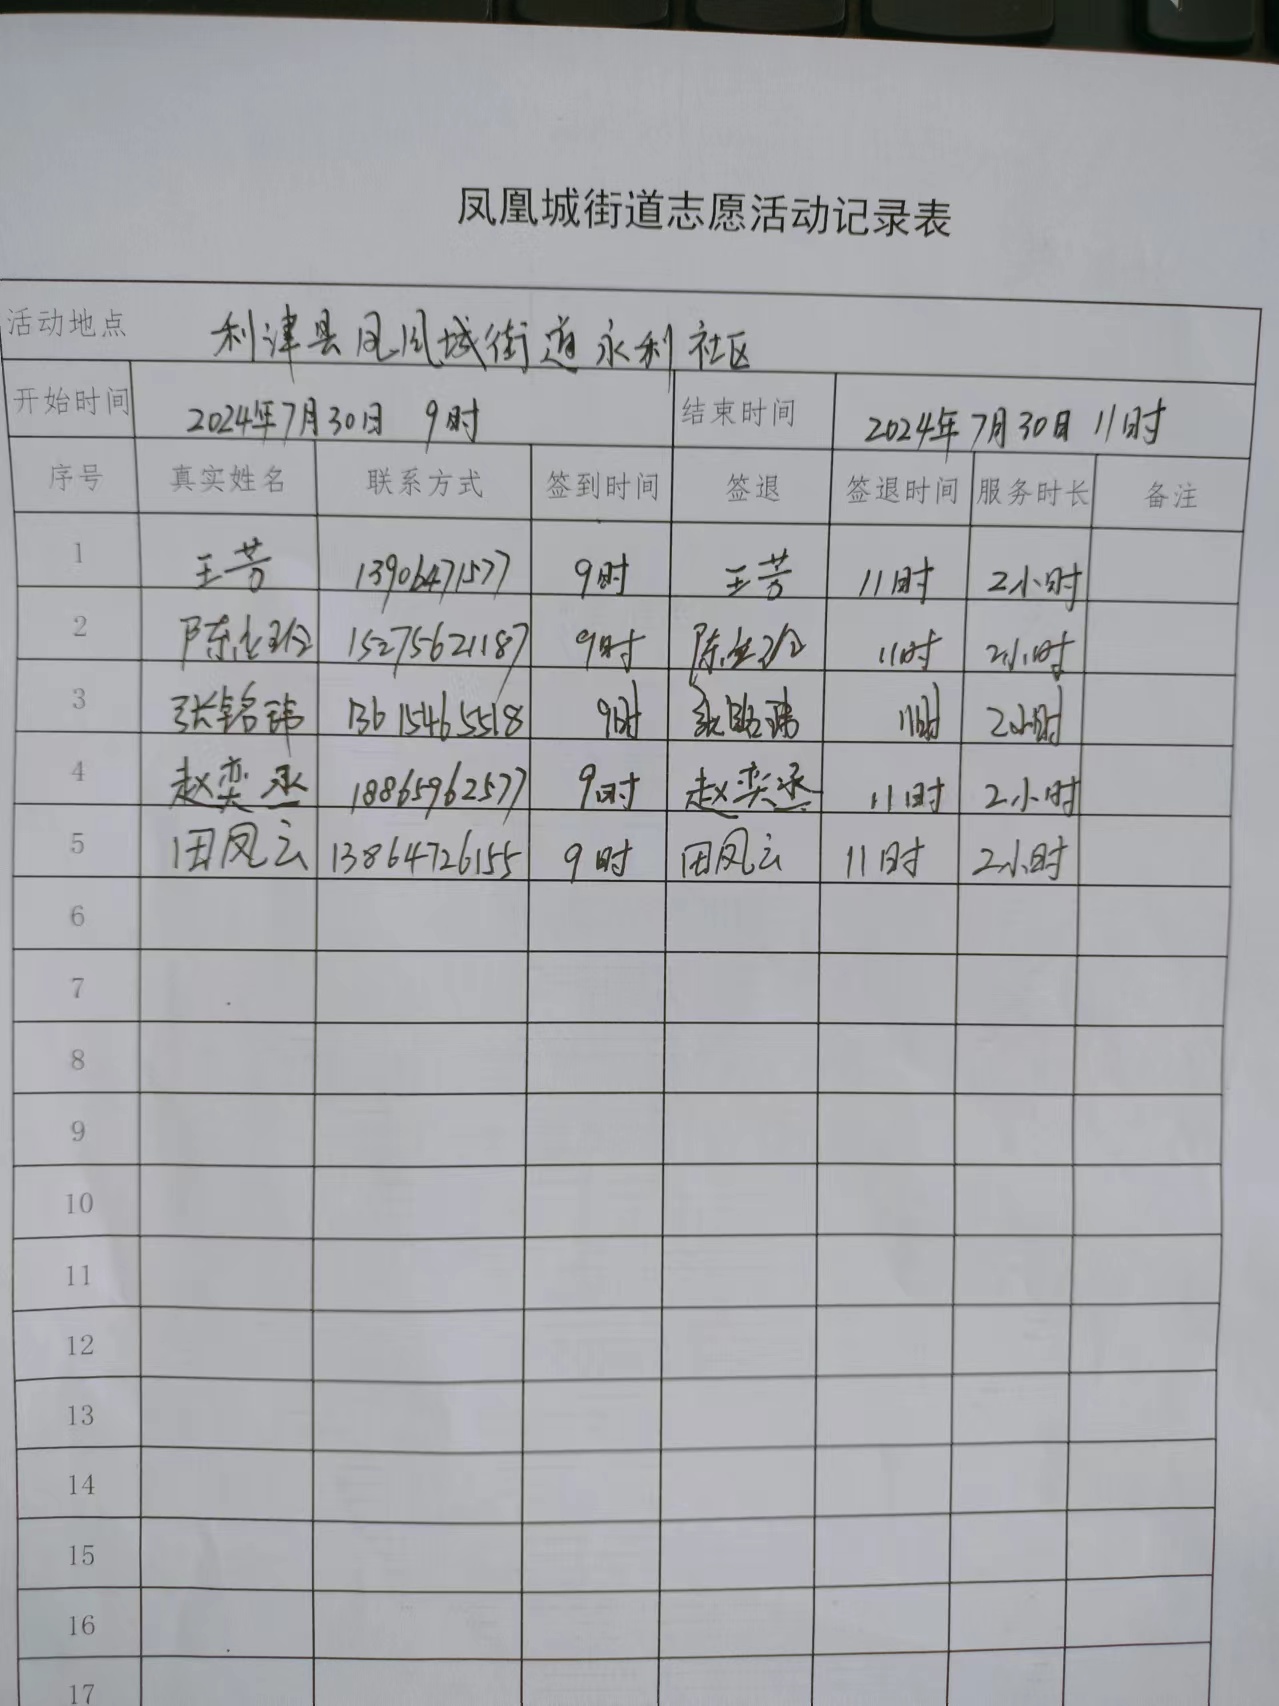 凤凰城街道志愿活动记录表
活动地点 利津县凤凰城街道永利社区
开始时间 2024年7月30日 9时 结束时间 2024年7月30日 11时
序号 真实姓名 联系方式 签到时间 签退 签退时间 服务时长 备注
1 王芳 13906471577 9时 王芳 11时 2小时
2 15275621187 9时 11时 2小时
3 张铭玮 13615465518 9时 张铭玮 11时 2小时
4 赵奕丞 18865962577 9时 赵奕丞 11时 2小时
5 田凤云 13864726155 9时 田凤云 11时 2小时
6
7
8
9
10
11
12
13
14
15
16
17